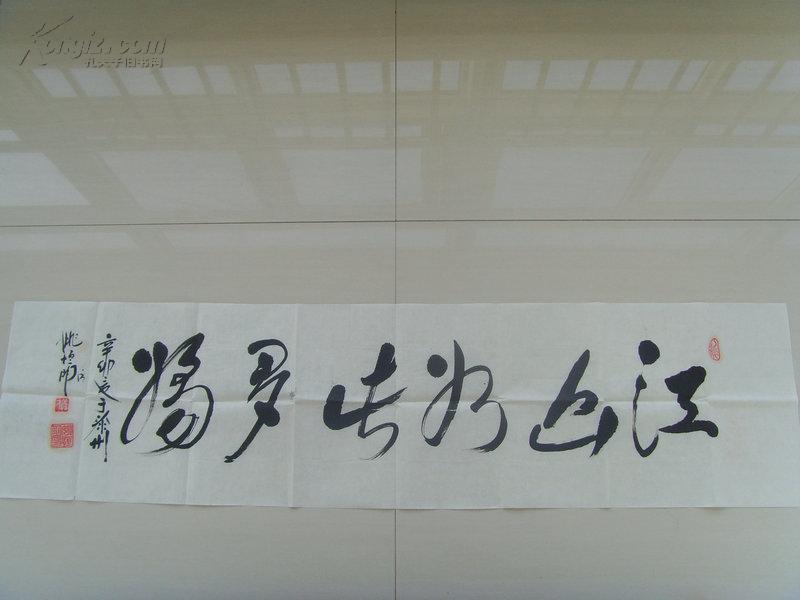 江山如此多娇
辛卯夏于泰州
Kongfz.com
孔夫子旧书网